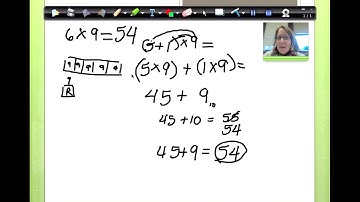 6 × 9 = 54
(5 + 1) × 9 =
(5 × 9) + (1 × 9) =
9
R
45 + 9
10
45 + 10 = 55
54
45 + 9 = 54
1/1